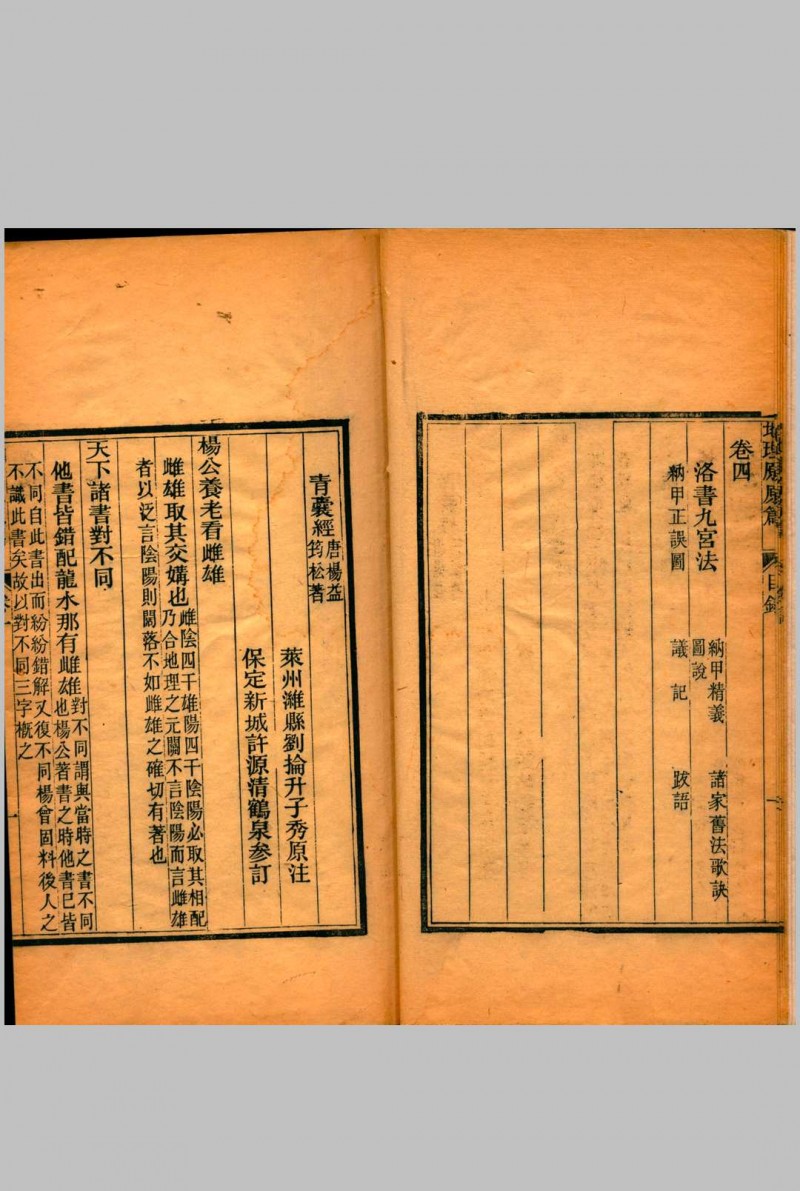 卷四
洛書九宮法
納甲精義
諸家舊法歌訣
圖說
納甲正誤圖
議記
跋語
目錄
青囊經
唐楊益
筠松著
萊州濰縣劉掄升子秀原注
保定新城許源清鶴泉參訂
楊公養老看雌雄
雌雄取其交媾也
雌陰四干雄陽四干陰陽必取其相配
乃合地理之元關不言陰陽而言雌雄
者以泛言陰陽則闊落不如雌雄之確切有著也
天下諸書對不同
他書皆錯配龍水那有雌雄
對不同謂與當時之書不同
也楊公著書之時他書已皆
不同自此書出而紛紛錯解又復不同楊曾固料後人之
不識此書矣故以對不同三字概之
一